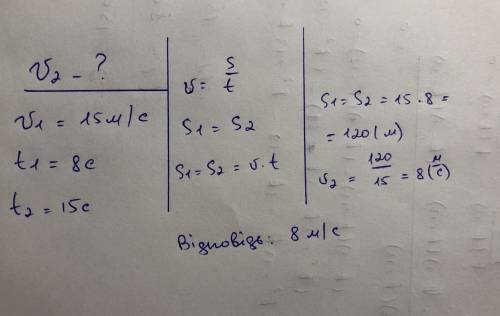 v₂ - ?
v₁ = 15м/с
t₁ = 8с
t₂ = 15с
v = s/t
S₁ = S₂
S₁ = S₂ = v · t
S₁ = S₂ = 15 · 8 =
= 120 (м)
v₂ = 120/15 = 8 (м/с)
Відповідь: 8 м/с